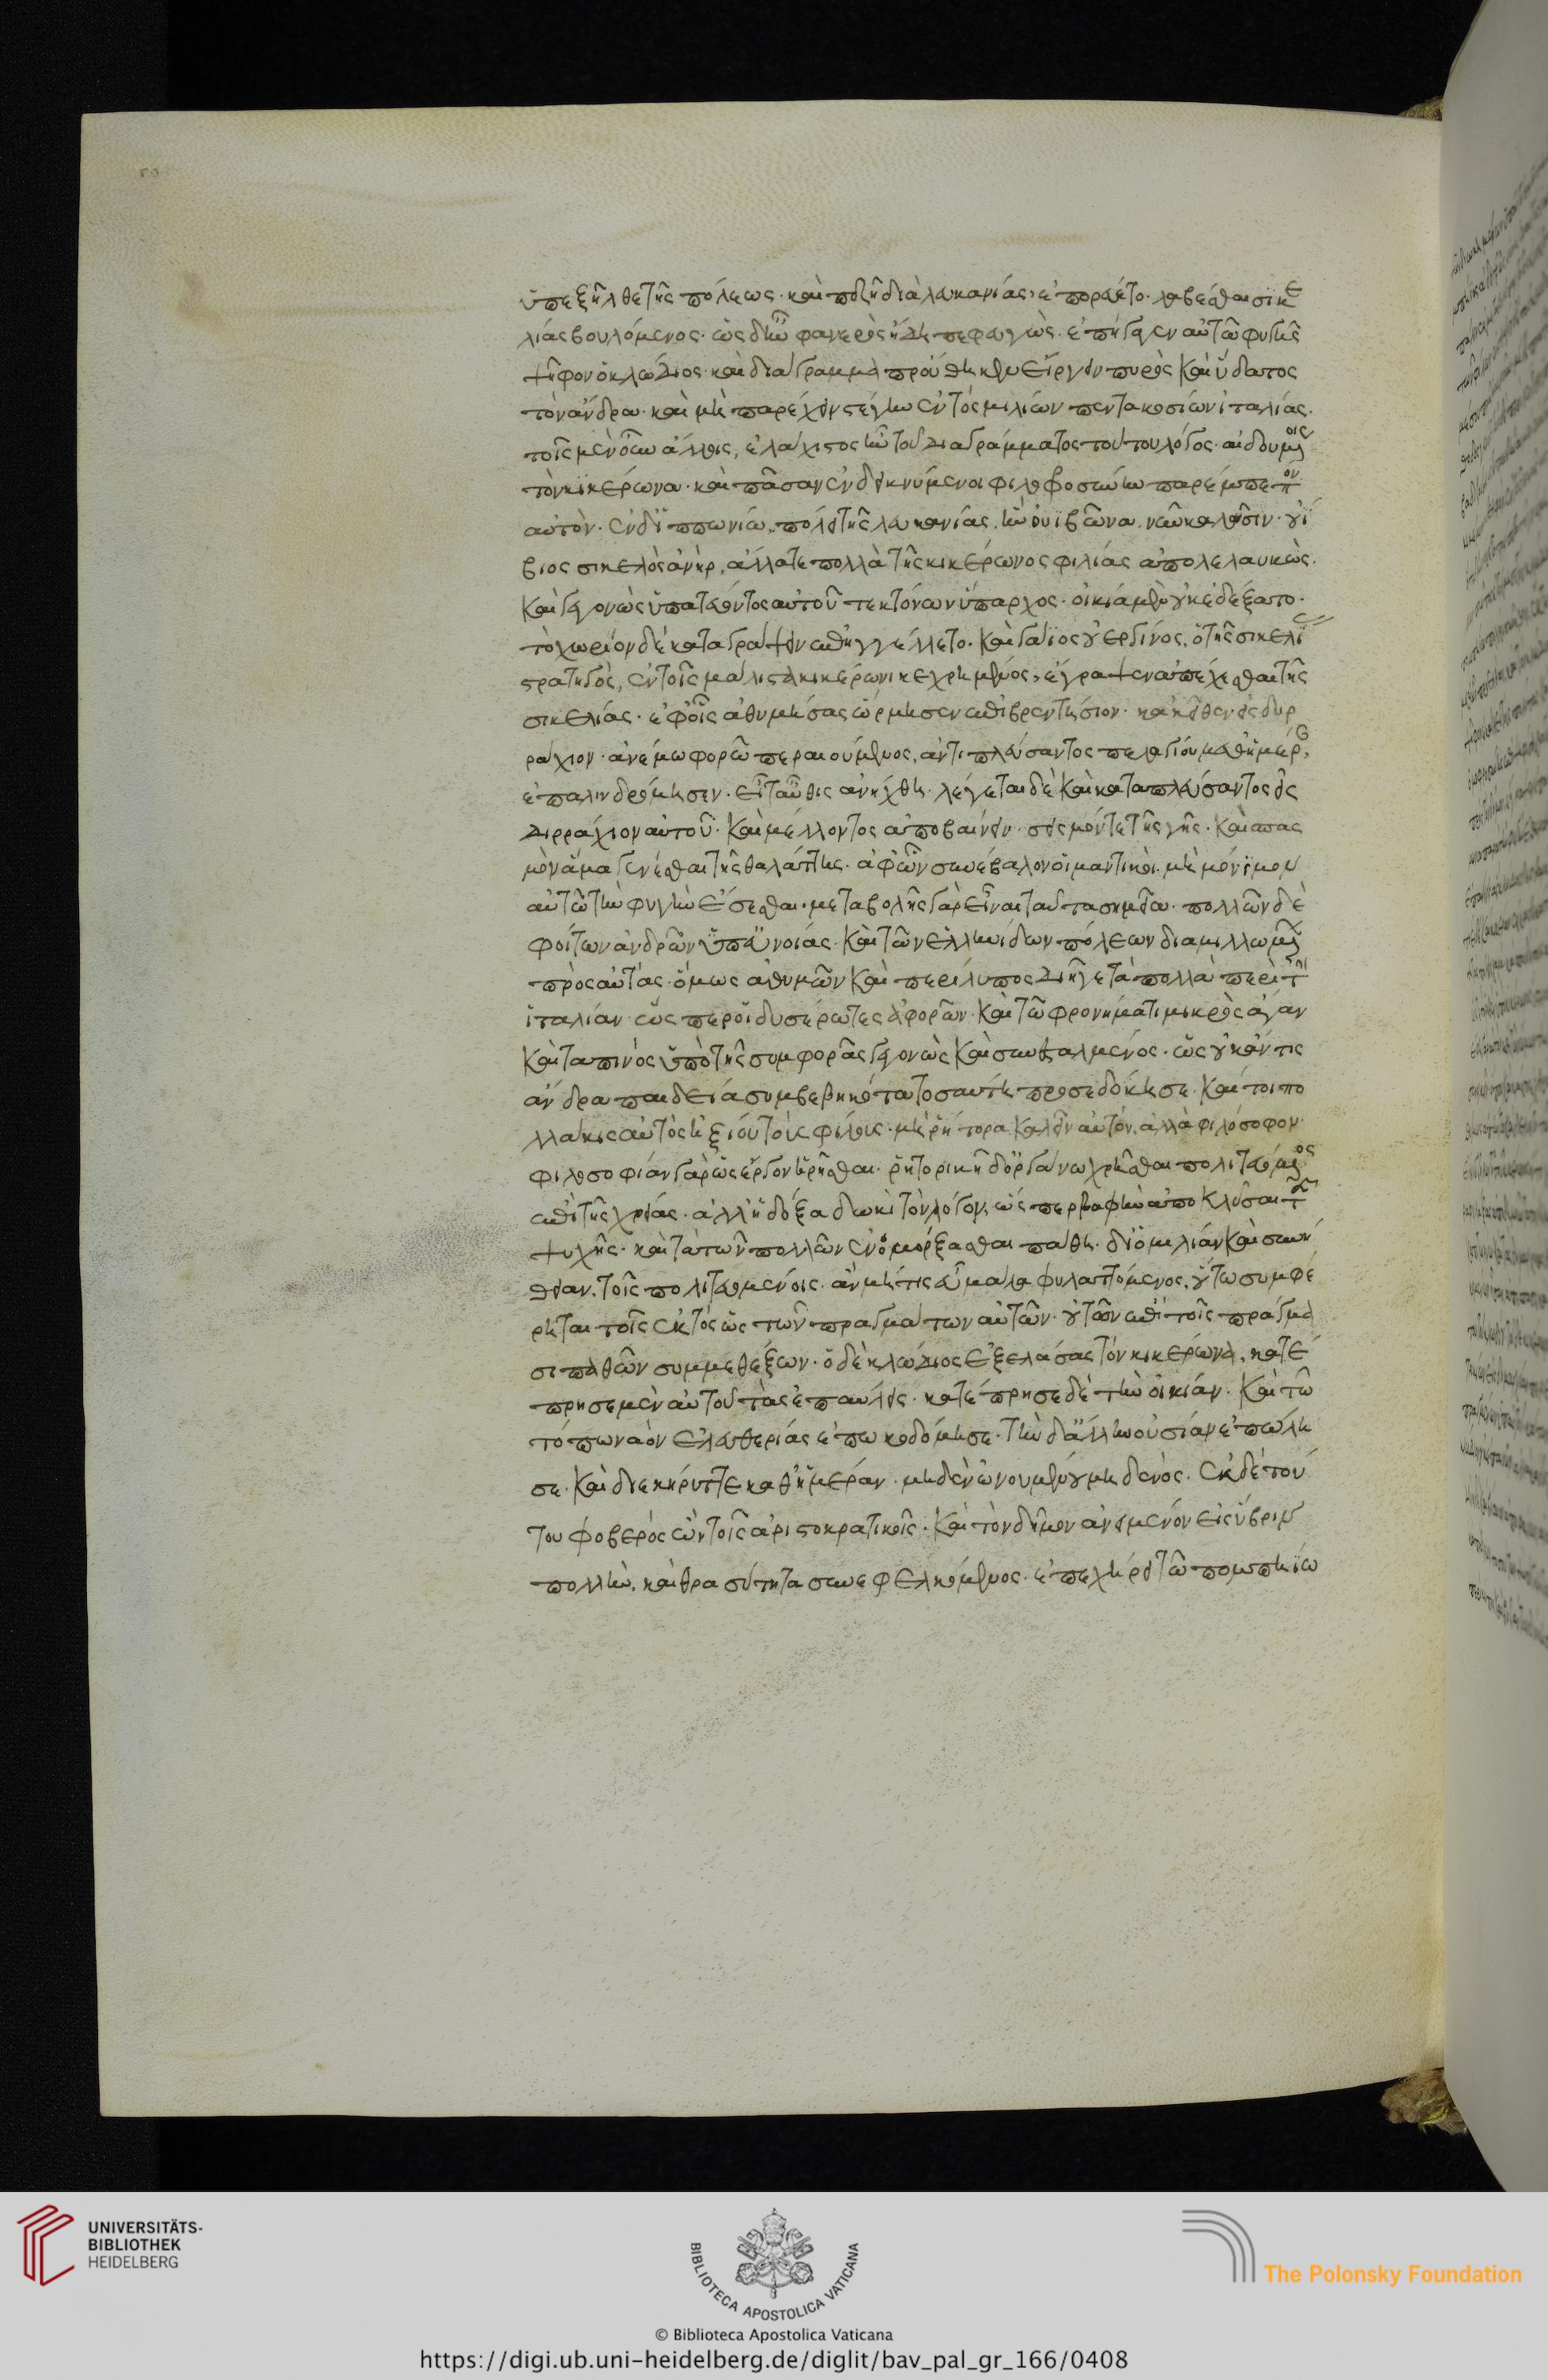 ὑπεξῆλθε τῆς πόλεως· καὶ πεζῆ διὰ λευκανίας, ἐπορεύετο· λαβέσθαι σικε
λίας βουλόμενος· ὡς δ' ἦν φανερὸς ἤδη πεφευγὼς· ἐπήγαγεν αὐτῶ φυγῆς
ψῆφον ὁ κλώδιος· καὶ διάγραμμα προύθηκεν εἴργειν πυρὸς καὶ ὕδατος
τὸν ἄνδρα· καὶ μὴ παρέχειν στέγην ἐντὸς μιλίων πεντακοσίων ἰταλίας.
τοῖς μὲν οὖν ἄλλοις, ἐλάχιστος ἦν τοῦ διαγράμματος τούτου λόγος· αἰδουμένοις
τὸν κικέρωνα· καὶ πᾶσαν ἐνδεικνύμενοι φιλοφροσύνην παρέμπεπον
αὐτὸν· ἐν δ' ἱππωνίω, πόλει τῆς λευκανίας, ἣν οὐιβῶνα νῦν καλοῦσιν· οὐί
βιος σικελὸς ἀνὴρ, ἄλλα τε πολλὰ τῆς κικέρωνος φιλίας ἀπολελαυκὼς.
καὶ γεγονὼς ὑπατεύοντος αὐτοῦ τεκτόνων ὕπαρχος· οἰκία μὲν οὐκ ἐδέξατο·
τὸ χωρίον δὲ καταγράψειν ἐπηγγέλλετο· καὶ γάϊος οὐεργίνος, ὁ τῆς σικελίας
στρατηγὸς, ἐν τοῖς μάλιστα κικέρωνι κεχρημένος, ἔγραψεν ἀπέχεσθαι τῆς
σικελίας· ἐφ' οἷς ἀθυμήσας ὥρμησεν ἐπὶ βρεντήσιον· κἀκεῖθεν εἰς δυρ
ράχιον· ἀνέμω φορῶ περαιούμενος, ἀντιπλεύσαντος πελαγίου μεθ' ἡμέρας
ἐπαλινδρόμησεν· εἶτ' αὖθις ἀνήχθη· λέγεται δὲ καὶ καταπλεύσαντος εἰς
διρράχιον αὐτοῦ· καὶ μέλλοντος ἀποβαίνειν· σεισμόν τε τῆς γῆς· καὶ σπας
μὸν ἅμα γενέσθαι τῆς θαλάττης· ἀφ' ὧν συνέβαλον οἱ μαντικοὶ· μὴ μόνιμον
αὐτῶ τὴν φυγὴν ἔσεσθαι· μεταβολῆς γὰρ εἶναι ταῦτα σημεῖα· πολλῶν δὲ
φοιτών ἀνδρῶν ὑπ' εὐνοίας· καὶ τῶν ἑλληνίδων πόλεων διαμιλλωμένων
πρὸς αὐτάς· ὅμως ἀθυμῶν καὶ περίλυπος διῆγε τὰ πολλὰ περὶ τὴν
ἰταλίαν· ὥσπερ οἱ δυσέρωτες ἀφορῶν· καὶ τῶ φρονήματι μικρὸς ἄγαν
καὶ ταπεινὸς ὑπὸ τῆς συμφορᾶς γεγονὼς καὶ συνεσταλμένος· ὡς οὐκ ἄν τις
ἄνδρα παιδεία συμβεβηκότα τοσαύτη προσεδόκησε· καί τοι πο
λλάκις αὐτὸς ἠξίου τοὺς φίλους· μὴ ῥήτορα καλεῖν αὐτόν, ἀλλὰ φιλόσοφον·
φιλοσοφίαν γὰρ ὡς ἔργον ἡρῆσθαι· ῥητορικῆ δ' ὀργάνω χρῆσθαι πολιτευόμενος
ἐπὶ τῆς χρείας· ἀλλ' ἡ δόξα δεινὴ τὸν λόγον, ὥσπερ βαφὴν ἀποκλύσαι τῆς
ψυχῆς· καὶ τὰ τῶν πολλῶν ἐνομόρξασθαι πάθη· δι' ὁμιλίαν καὶ συνή
θειαν, τοῖς πολιτευομένοις· ἂν μή τις εὖ μάλα φυλαττόμενος, οὕτω συμφέ
ρηται τοῖς ἐκτὸς ὡς τῶν πραγμάτων αὐτῶν· οὐ τῶν ἐπὶ τοῖς πράγμα
σι παθῶν συμμεθέξων· ὁ δὲ κλώδιος ἐξελάσας τὸν κικέρωνα, κατέ
πρησε μὲν αὐτοῦ τὰς ἐπαύλεις· κατέπρησε δὲ τὴν οἰκίαν· καὶ τῶ
τόπω ναὸν ἐλευθερίας ἐπωκοδόμησε· τὴν δ' ἄλλην οὐσίαν ἐπώλη
σε· καὶ διεκήρυττε καθ' ἡμέραν· μηδὲν ὠνουμένου μηδενός· ἐκ δὲ τού
του φοβερὸς ὢν τοῖς ἀριστοκρατικοῖς· καὶ τὸν δῆμον ἀνειμένον εἰς ὕβριν
πολλὴν, καὶ θρασύτητα συνεφελκόμενος· ἐπεχείρει τῶ πομπηίω
UNIVERSITÄTS-
BIBLIOTHEK
HEIDELBERG
BIBLIOTECA APOSTOLICA VATICANA
The Polonsky Foundation
© Biblioteca Apostolica Vaticana
https://digi.ub.uni-heidelberg.de/diglit/bav_pal_gr_166/0408